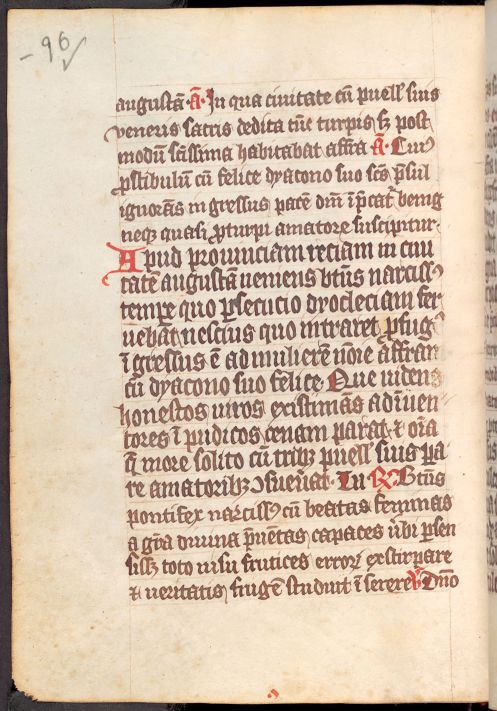 96
augustā · ā · In qua ciuitate cū puell' suis
veneris sacris dedita tūc turpis sꝫ post
modū scīssima habitabat affra ā Cuiꝰ
ꝓstibulū cū felice dyacono suo scūs p̄sul
ignorās in gressus pacē dnī ip̄cat' benig
neqꝫ quasi ꝓturpi amatore suscipitur·
Apud prouinciam reciam in ciui
tatē augustā ueniens btūs narcissꝰ
tempe quo p̱secucio dyocleciani fer
uebat nescius quo intraret ꝓfugꝰ
ī gressus ē ad mulierē nōie affram
cū dyacono suo felice Que uidens
honestos uiros existimās ad īuen
tores ī pudicos cenam parat ⁊ oīa
q̄ more solito cū tribꝫ puell' suis pa
re amatoribꝫ ↄsueuat· In ℟ Btūs
pontifex narcissꝰ cū beatas feminas
a grā diuina p̄uētas capaces ūbi p̱sen
sissꝫ toto nisu frutices erroꝝ exstirpare
⁊ ueritatis frugē studuit ī serere ℣ Dno